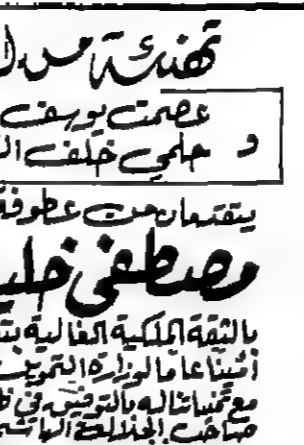 تهنئة من
عصمت يوسف
و حلمي خلف
يتقدمان من عطوفة
مصطفى
بالثقة الملكية الغالية
أميناً عاما لوزارة التموين
مع تمنياتنا له بالتوفيق في
صاحب الجلالة